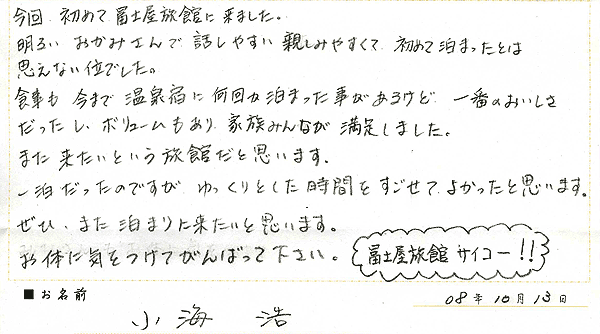 今回、初めて冨士屋旅館に来ました。
明るいおかみさんで話しやすい親しみやすくて、初めて泊まったとは
思えない位でした。
食事も今まで温泉宿に何回か泊まった事があるけど、一番のおいしさ
だったし、ボリュームもあり、家族みんなが満足しました。
また来たいという旅館だと思います。
一泊だったのですが、ゆっくりとした時間をすごせてよかったと思います。
ぜひ、また泊まりに来たいと思います。
お体に気をつけてがんばって下さい。
冨士屋旅館サイコー!!
■お名前
小海 浩
08年10月13日